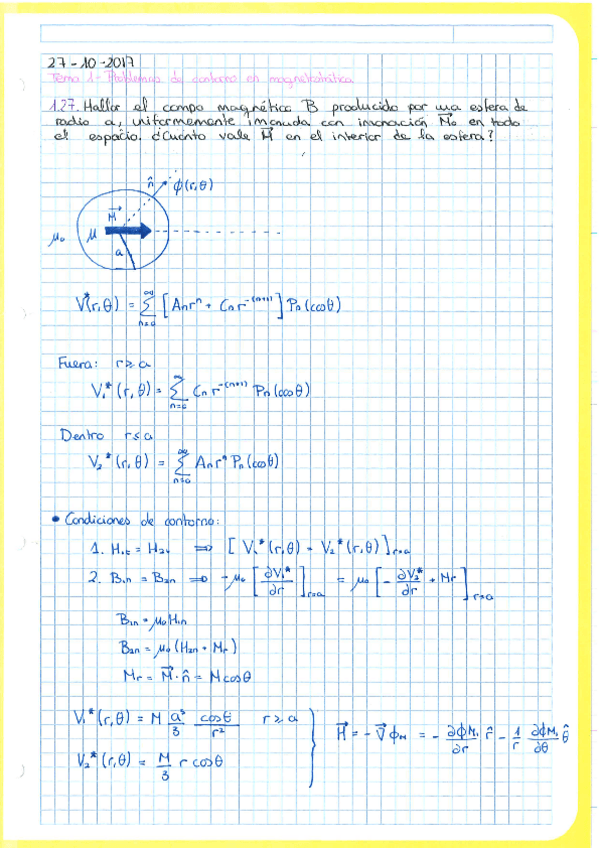 27-10-2017
Tema 1- Problemas de contorno en magnetostática
1.27. Hallar el campo magnético B producido por una esfera de
radio a, uniformemente imanada con imanación M⃗₀ en todo
el espacio. ¿Cuánto vale H⃗ en el interior de la esfera?
n̂ ϕ(r,θ)
M⃗
μ₀ μ
a
V*(r,θ) = ∑ₙ₌₀^∞ [Aₙrⁿ + Cₙr^-(n+1)] Pₙ(cosθ)
Fuera: r≥a
V₁*(r,θ) = ∑ₙ₌₀^∞ Cₙ r^-(n+1) Pₙ(cosθ)
Dentro r≤a
V₂*(r,θ) = ∑ₙ₌₀^∞ Aₙrⁿ Pₙ(cosθ)
• Condiciones de contorno:
1. H₁t = H₂t ⟹ [V₁*(r,θ) = V₂*(r,θ)]r=a
2. B₁n = B₂n ⟹ -μ₀[∂V₁*/∂r]r=a = μ₀[-∂V₂*/∂r + Mr]r=a
B₁n = μ₀H₁n
B₂n = μ₀(H₂n + Mr)
Mr = M⃗·n̂ = M cosθ
V₁*(r,θ) = M a³/3 cosθ/r² r≥a
V₂*(r,θ) = M/3 r cosθ
H⃗ = -∇⃗ϕM = -∂ϕM/∂r r̂ - 1/r ∂ϕM/∂θ θ̂